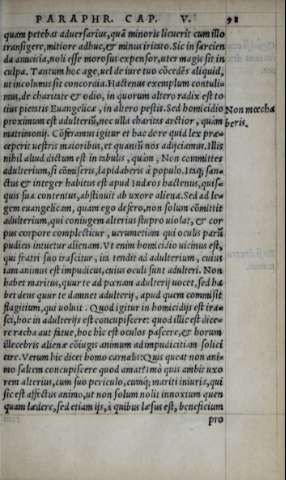 PARAPHR. CAP. V. 98
quam petebat aduersarius, quã minoris licuerit cum illo
transigere, mitiore adhuc, & minus irritato. Sic in sarcien
da amicitia, noli esse morosus expensor, uter magis sit in
culpa. Tantum hoc age, uel de iure tuo cõcedẽs aliquid,
ut incolumis sit concordia. Hactenus exemplum contuli-
mus, de charitate & odio, in quorum altero radix est to
tius pietatis Euangelicæ, in altero pestis. Sed homicidio
proximum est adulteriũ, nec ulla charitas arctior, quàm
matrimonij. Cõferamus igitur et hac de re quid lex præ=
ceperit uestris maioribus, et quanti nos adijciamus. Illis
nihil aliud dictum est in tabulis, quàm, Non committes
adulterium, si cõmiseris, lapidaberis à populo. Itaq; san=
ctus & integer habitus est apud Iudæos hactenus, quis=
quis sua contentus, abstinuit ab uxore aliena. Sed ad le=
gem euangelicam, quam ego desero, non solum cõmittit
adulterium, qui coniugem alterius stupro uiolat, & cor
pus corpore complectitur, uerumetiam qui oculis parũ
pudicis intuetur alienam. Vt enim homicidio uicinus est,
qui fratri suo irascitur, ita tendit ad adulterium, cuius
iam animus est impudicus, cuius oculi sunt adulteri. Non
habet maritus, quur te ad pœnam adulterij uocet, sed ha
bet deus quur te damnet adulterij, apud quem commisit
flagitium, qui uoluit. Quod igitur in homicidijs est ira=
sci, hoc in adulterijs est concupiscere: quod illic est dice=
re racha aut fatue, hoc hic est oculos pascere, & horum
illecebris alienæ cõiugis animum ad impudicitiam solici
tare. Verum hic dicet homo carnalis: Quis queat non ani=
mo saltem concupiscere quod amat? imò quis ambit uxo
rem alterius, cum suo periculo, cumq; mariti iniuria, qui
sic est affectus animo, ut non solum nolit innoxium quen
quam lædere, sed etiam ijs, à quibus læsus est, beneficium
pro
Non mœcha
beris.